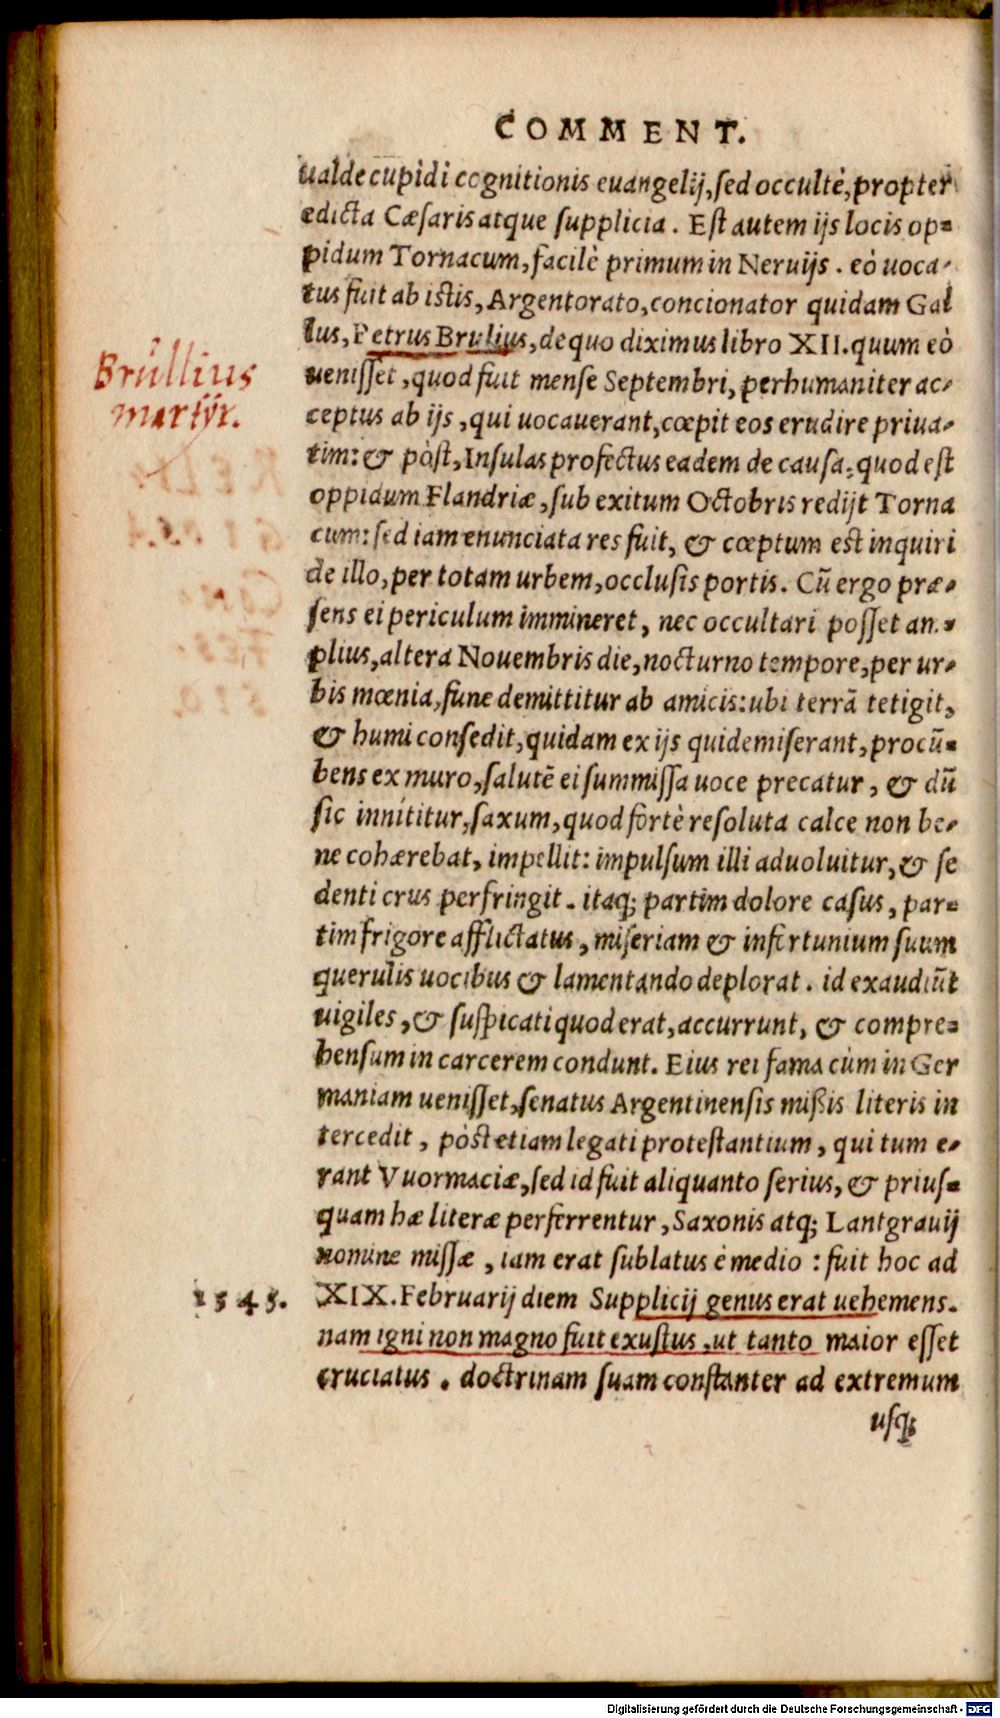 COMMENT.
ualde cupidi cognitionis euangelij, sed occultè, propter
edicta Cæsaris atque supplicia. Est autem ijs locis op-
pidum Tornacum, facilè primum in Neruijs. eò uoca-
tus fuit ab istis, Argentorato, concionator quidam Gal
lus, Petrus Brulius, de quo diximus libro XII. quum eò
uenisset, quod fuit mense Septembri, perhumaniter ac-
ceptus ab ijs, qui uocauerant, cœpit eos erudire priua-
tim: & pòst, Insulas profectus eadem de causa: quod est
oppidum Flandriæ, sub exitum Octobris redijt Torna
cum: sed iam enunciata res fuit, & cœptum est inquiri
de illo, per totam urbem, occlusis portis. Cũ ergo præ-
sens ei periculum immineret, nec occultari posset am-
plius, altera Nouembris die, nocturno tempore, per ur-
bis mœnia, fune demittitur ab amicis: ubi terrã tetigit,
& humi consedit, quidam ex ijs qui demiserant, procũ-
bens ex muro, salutẽ ei summissa uoce precatur, & dũ
sic innititur, saxum, quod fortè resoluta calce non be-
ne cohærebat, impellit: impulsum illi aduoluitur, & se
denti crus perfringit. itaq; partim dolore casus, par-
tim frigore afflictatus, miseriam & infortunium suum
querulis uocibus & lamentando deplorat. id exaudiũt
uigiles, & suspicati quod erat, accurrunt, & compre-
hensum in carcerem condunt. Eius rei fama cùm in Ger
maniam uenisset, senatus Argentinensis mißis literis in
tercedit, pòst etiam legati protestantium, qui tum e-
rant Vuormaciæ, sed id fuit aliquanto serius, & prius-
quam hæ literæ perferrentur, Saxonis atq; Lantgrauij
nomine missæ, iam erat sublatus è medio: fuit hoc ad
XIX. Februarij diem Supplicij genus erat uehemens.
nam igni non magno fuit exustus, ut tanto maior esset
cruciatus. doctrinam suam constanter ad extremum
usq;
Brüllius
martÿr.
1545.
Digitalisierung gefördert durch die Deutsche Forschungsgemeinschaft - DFG